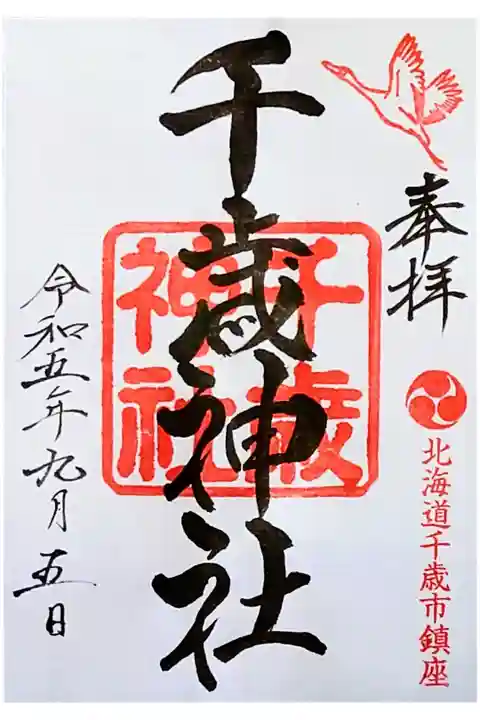 奉拝
北海道千歳市鎮座
千歳神社
千歳
神社
令和五年九月五日